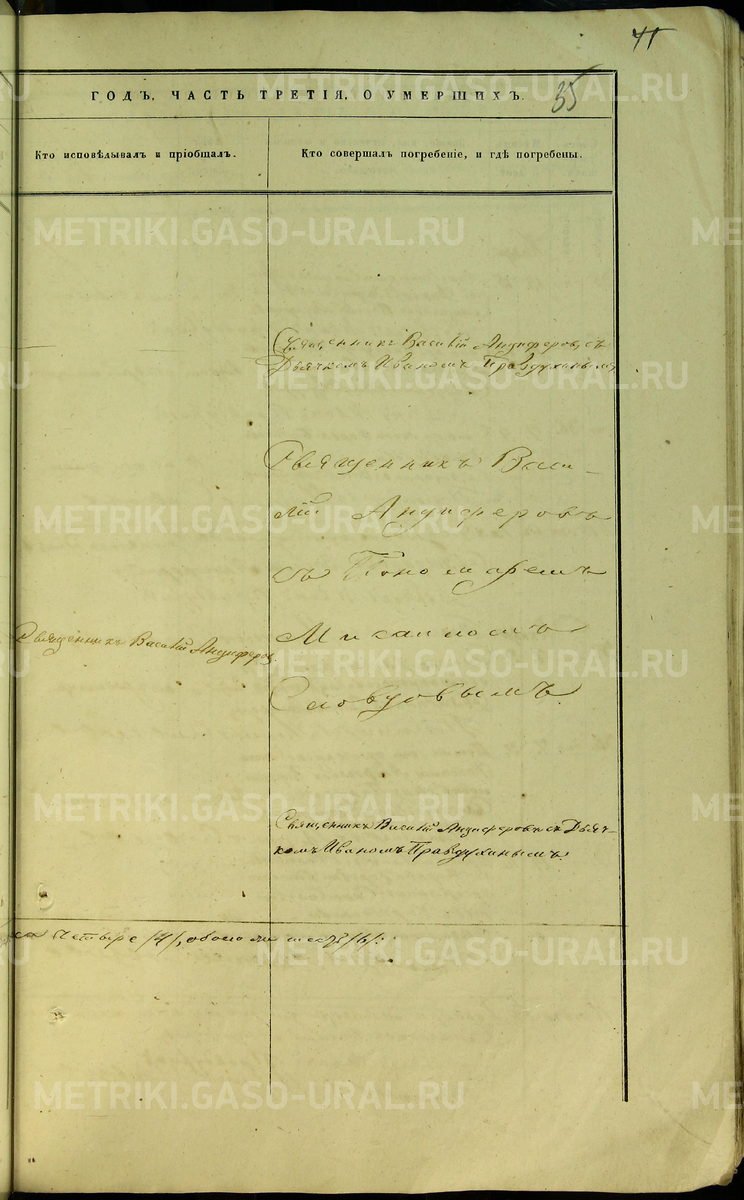 41
35
ГОДЪ, ЧАСТЬ ТРЕТІЯ, О УМЕРШИХЪ.
Кто исповѣдывалъ и пріобщалъ.
Кто совершалъ погребеніе, и гдѣ погребены.
Священникъ Василій Анциферовъ съ
Дьячкомъ Иваномъ Правдухинымъ
Священникъ Васи-
лій Анциферовъ
съ Пономаремъ
Словцовымъ.
Священникъ Василій Анциферов
Священникъ Василій Анциферовъ съ Дьяч-
комъ Иваномъ Правдухинымъ.
четыре /4/, обоего шесть /6/.
METRIKI.GASO-URAL.RU